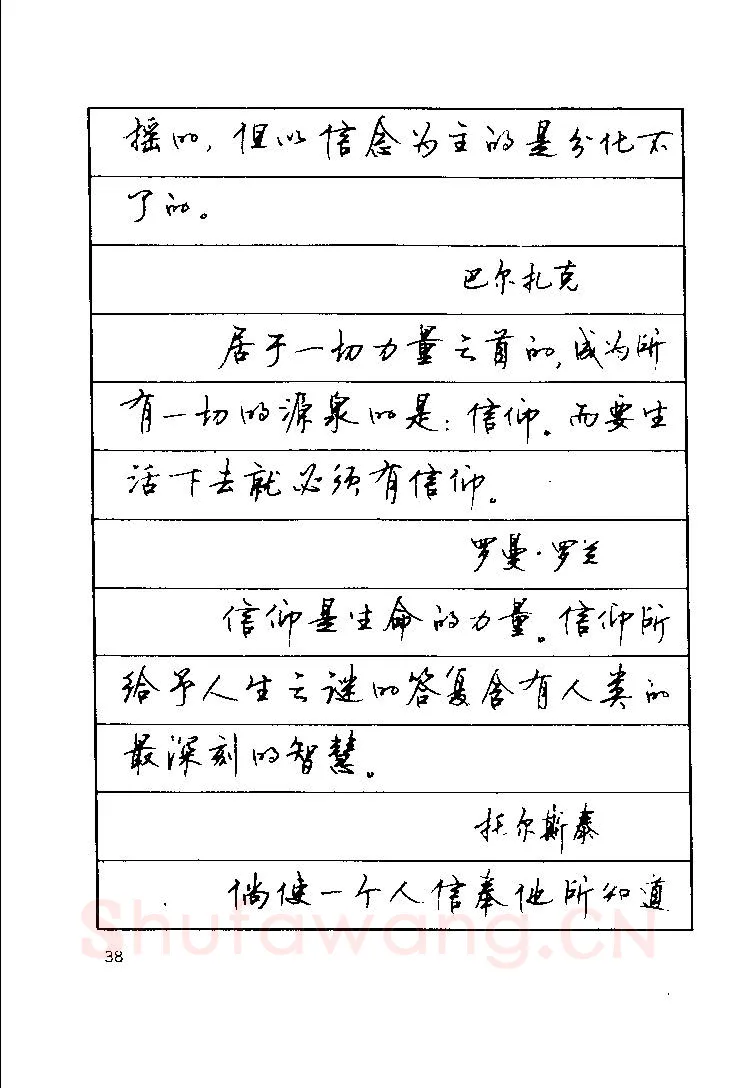 摇的，但以信念为主的是分化不
了的。
巴尔扎克
居于一切力量之首的，成为所
有一切的源泉的是：信仰。而要生
活下去就必须有信仰。
罗曼·罗兰
信仰是生命的力量。信仰所
给予人生之谜的答复含有人类的
最深刻的智慧。
托尔斯泰
倘使一个人信奉他所知道
Shufawang.CN
38